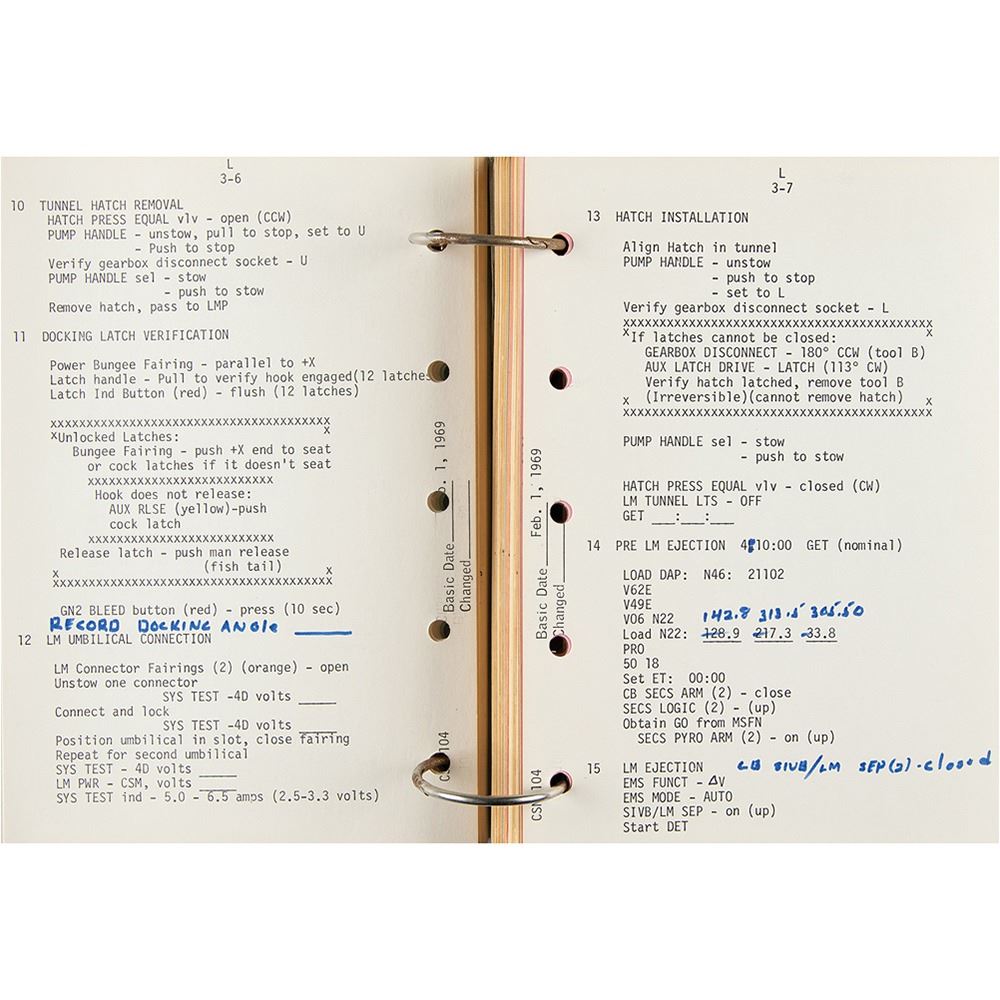 L
3-6
10 TUNNEL HATCH REMOVAL
HATCH PRESS EQUAL vlv - open (CCW)
PUMP HANDLE - unstow, pull to stop, set to U
- Push to stop
Verify gearbox disconnect socket - U
PUMP HANDLE sel - stow
- push to stow
Remove hatch, pass to LMP
11 DOCKING LATCH VERIFICATION
Power Bungee Fairing - parallel to +X
Latch handle - Pull to verify hook engaged(12 latches
Latch Ind Button (red) - flush (12 latches)
xxxxxxxxxxxxxxxxxxxxxxxxxxxxxxxxxxxxx
xUnlocked Latches: x
Bungee Fairing - push +X end to seat
or cock latches if it doesn't seat
xxxxxxxxxxxxxxxxxxxxxxxxx
Hook does not release:
AUX RLSE (yellow)-push
cock latch
xxxxxxxxxxxxxxxxxxxxxxxxx
Release latch - push man release
(fish tail)
x x
xxxxxxxxxxxxxxxxxxxxxxxxxxxxxxxxxxxxx
GN2 BLEED button (red) - press (10 sec)
RECORD DOCKING ANGLE ____
12 LM UMBILICAL CONNECTION
LM Connector Fairings (2) (orange) - open
Unstow one connector
SYS TEST -4D volts _____
Connect and lock
SYS TEST -4D volts _____
Position umbilical in slot, close fairing
Repeat for second umbilical
SYS TEST - 4D volts _____
LM PWR - CSM, volts _____
SYS TEST ind - 5.0 - 6.5 amps (2.5-3.3 volts)
Basic Date b. 1, 1969
Changed
104
L
3-7
13 HATCH INSTALLATION
Align Hatch in tunnel
PUMP HANDLE - unstow
- push to stop
- set to L
Verify gearbox disconnect socket - L
xxxxxxxxxxxxxxxxxxxxxxxxxxxxxxxxxxxxxxxxx
xIf latches cannot be closed: x
GEARBOX DISCONNECT - 180° CCW (tool B)
AUX LATCH DRIVE - LATCH (113° CW)
Verify hatch latched, remove tool B
x (Irreversible)(cannot remove hatch) x
xxxxxxxxxxxxxxxxxxxxxxxxxxxxxxxxxxxxxxxxx
PUMP HANDLE sel - stow
- push to stow
HATCH PRESS EQUAL vlv - closed (CW)
LM TUNNEL LTS - OFF
GET ___:___:___
14 PRE LM EJECTION 4:10:00 GET (nominal)
LOAD DAP: N46: 21102
V62E
V49E
V06 N22 142.8 313.5 305.50
Load N22: 128.9 217.3 -33.8
PRO
50 18
Set ET: 00:00
CB SECS ARM (2) - close
SECS LOGIC (2) - (up)
Obtain GO from MSFN
SECS PYRO ARM (2) - on (up)
15 LM EJECTION CB SIVB/LM SEP(2)-closed
EMS FUNCT - ΔV
EMS MODE - AUTO
SIVB/LM SEP - on (up)
Start DET
Basic Date Feb. 1, 1969
Changed
CSM 104